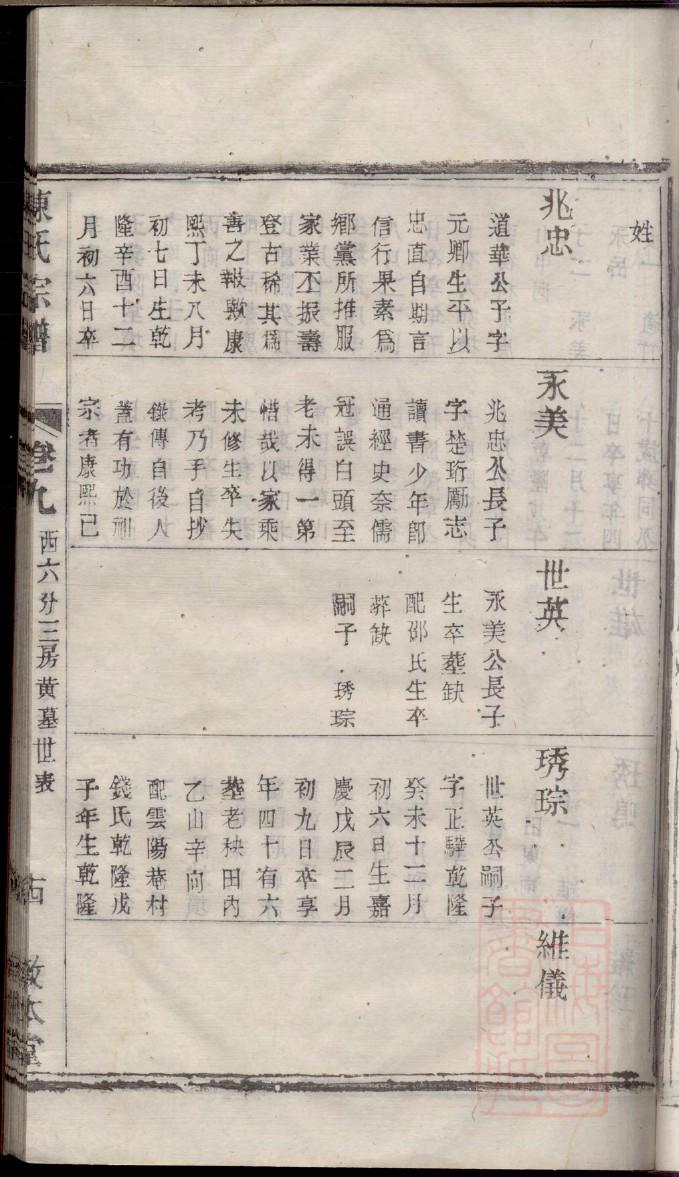 姓
兆忠
道華公子字
元卿生平以
忠直自期言
信行果素爲
鄉黨所推服
家業丕振壽
登古稀其爲
善之報歟康
熙丁未八月
初七日生乾
隆辛酉十二
月初六日卒
永美
兆忠公長子
字楚珩勵志
讀書少年即
通經史奈儒
冠誤白頭至
老未得一第
惜哉以家乘
未修生卒失
考乃手自抄
錄傳自後人
蓋有功於祖
宗者康熙己
世英
永美公長子
生卒塟缺
配邵氏生卒
葬缺
嗣子 琇琮
琇琮
世英公嗣子
字正驊乾隆
癸未十二月
初六日生嘉
慶戊辰二月
初九日卒享
年四十有六
塟老秧田內
乙山辛向
配雲陽菴村
錢氏乾隆戊
子年生乾隆
維儀
陳氏宗譜
卷九
西六分三房黃墓世表
敦本堂